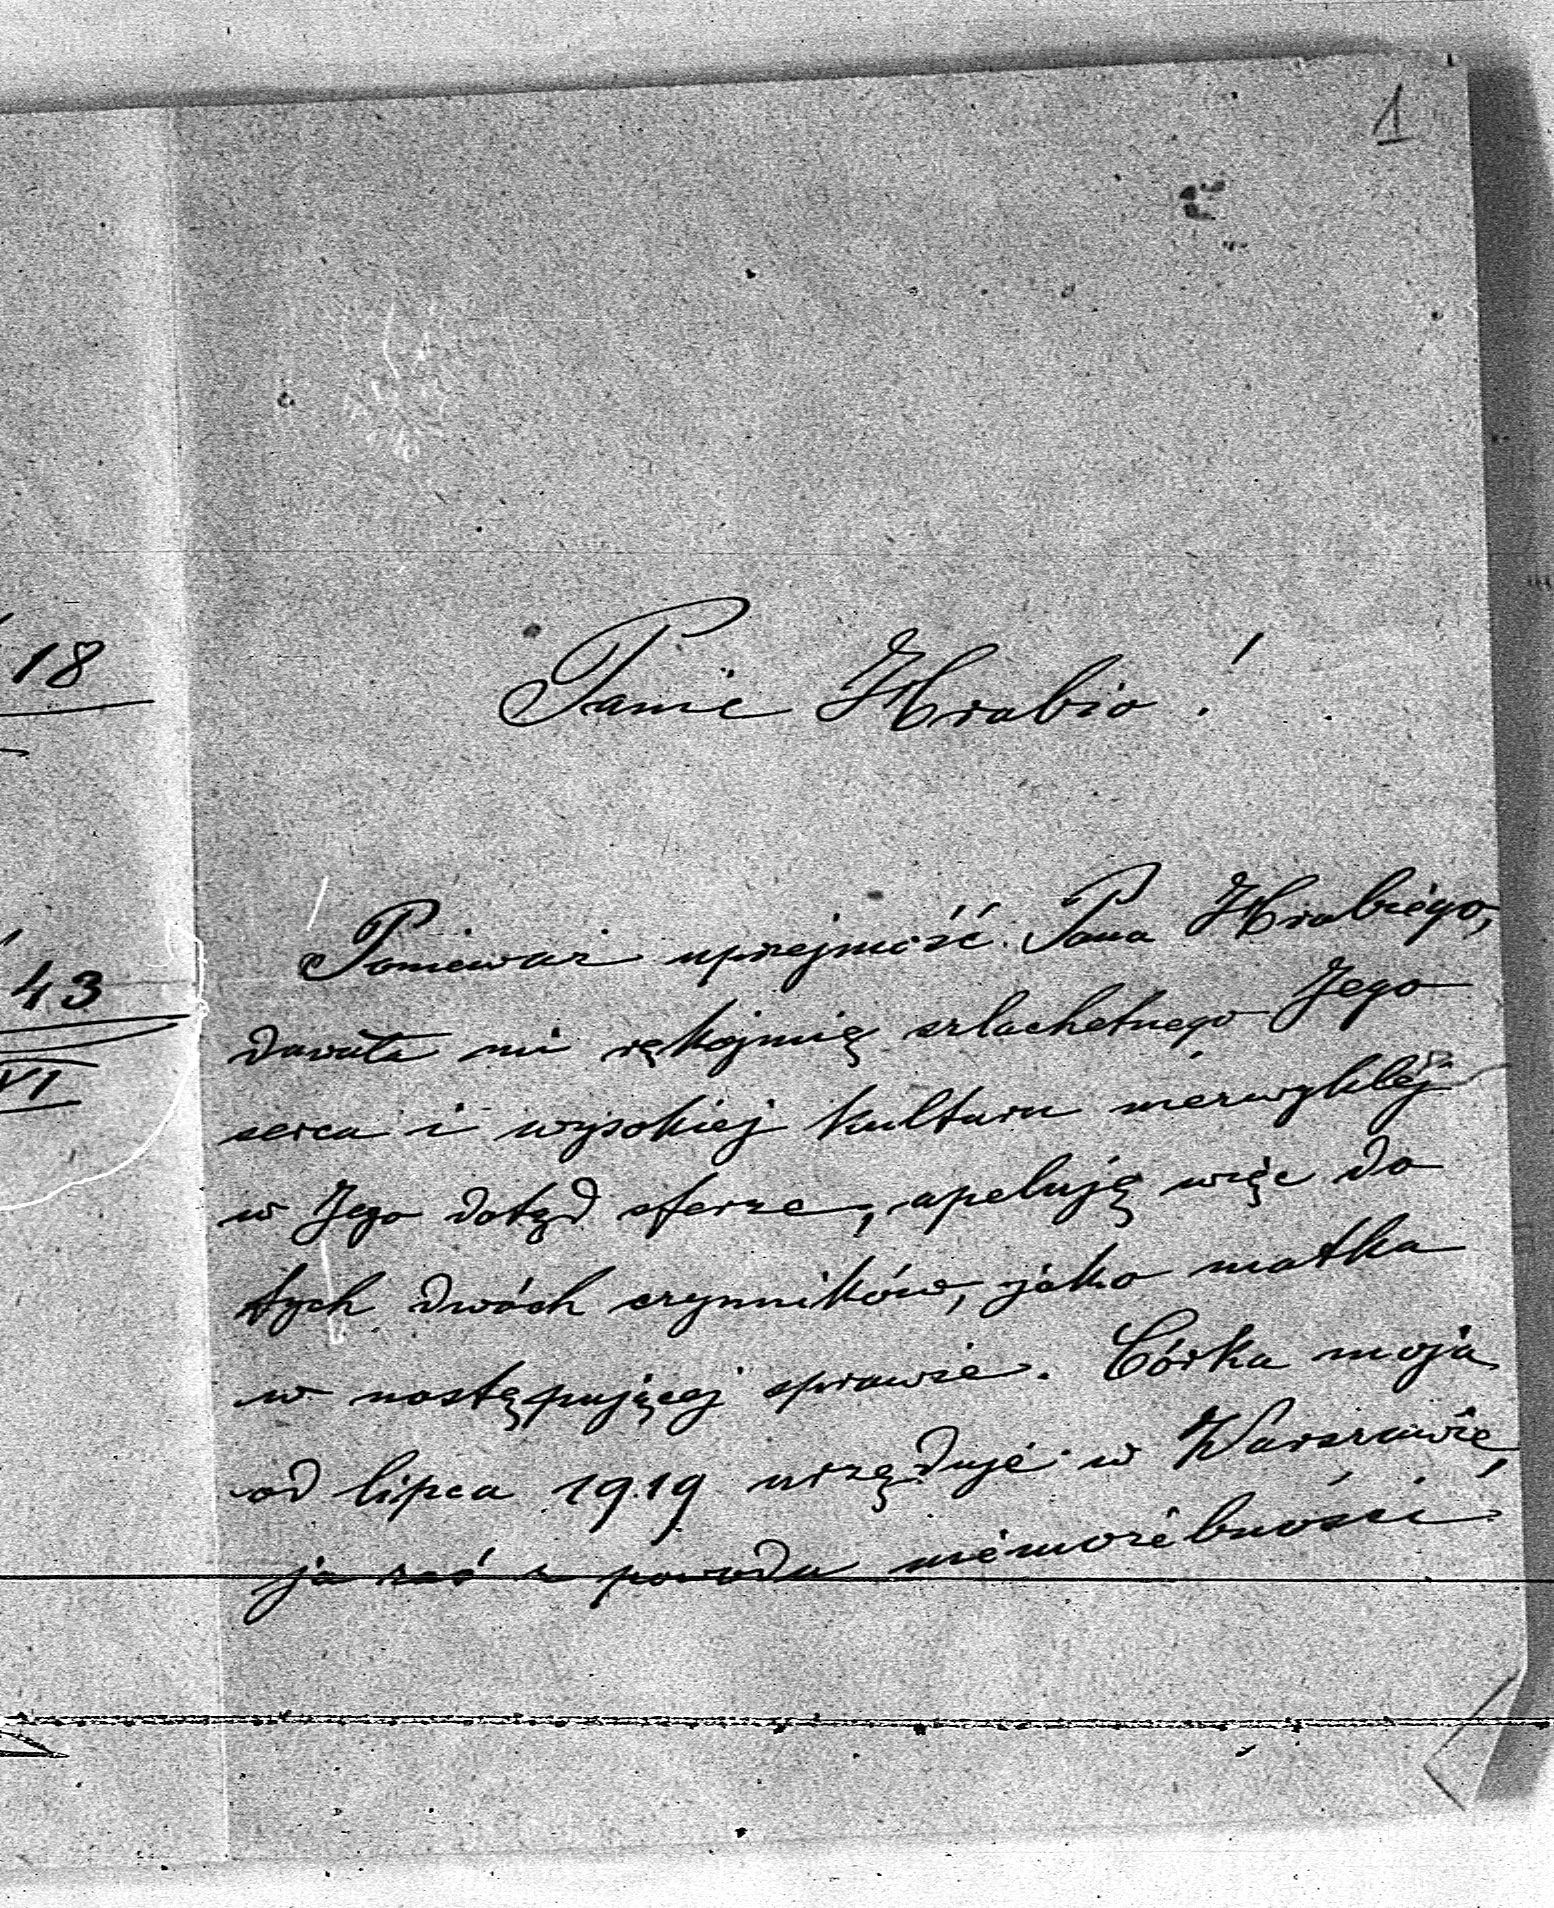 1
18
43
VI
Panie Hrabio!
Ponieważ uprzejmość Pana Hrabiego,
dawała mi rękojmię szlachetnego Jego
serca i wysokiej kultury niezwykłej
w Jego dotąd sferze, apeluję więc do
tych dwóch czynników, jako matka
w następującej sprawie. Córka moja
od lipca 1919 urzęduje w Warszawie,
ja zaś z powodu niemożebności